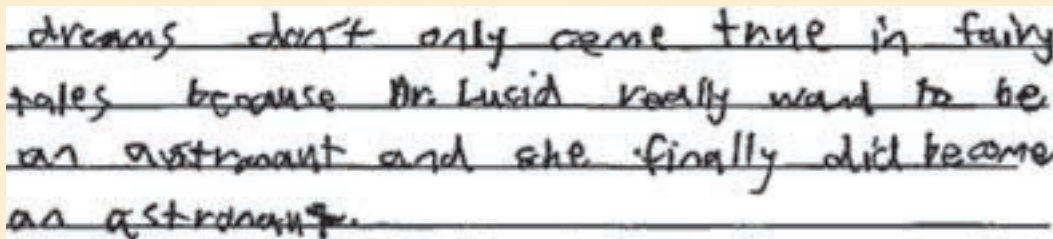 dreams don't only come true in fairy
tales because Dr. Lucid really want to be
an astronant and she finally did become
an astronant.